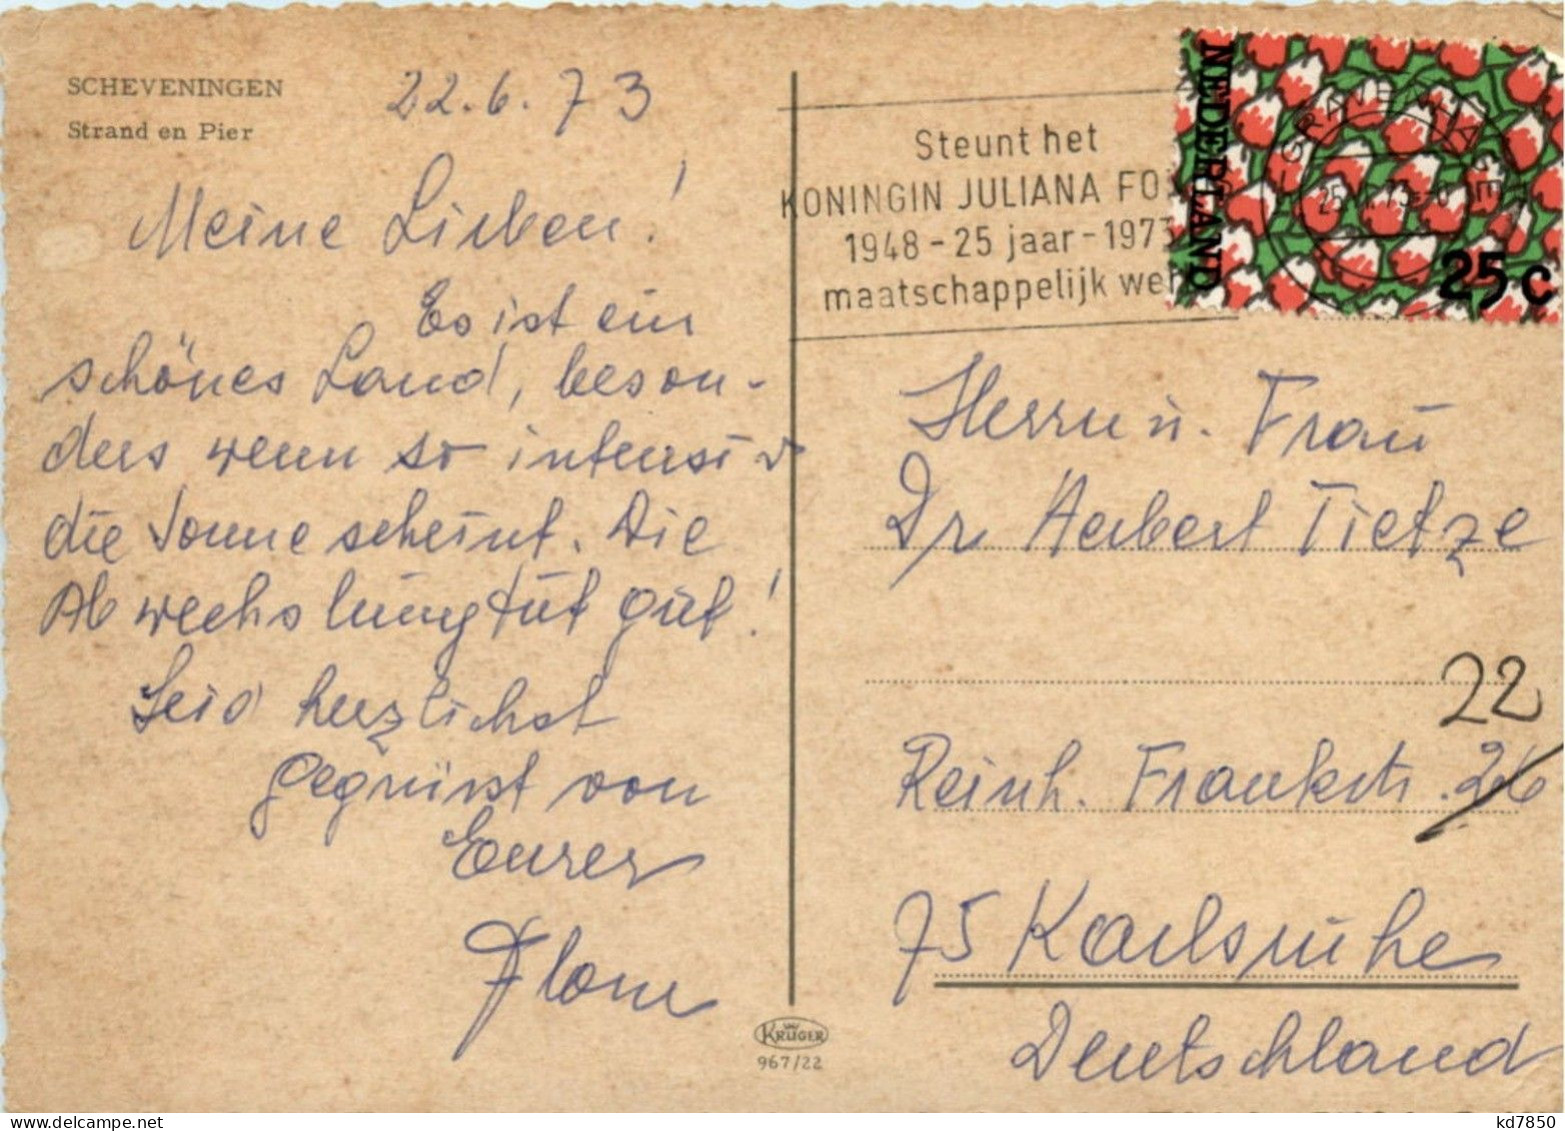 SCHEVENINGEN
Strand en Pier
22.6.73
Meine Lieben!
Es ist ein
schönes Land, beson-
ders wenn so intensiv
die Sonne scheint. Die
Abwechslung tut gut!
Seid herzlichst
gegrüsst von
Eurer
Steunt het
KONINGIN JULIANA FO
1948 - 25 jaar - 1973
maatschappelijk wer
NEDERLAND
'S-GRAVENHAGE
25 c
Herrn u. Frau
Dr. Herbert Tietze
22
Reinh. Frankstr. 26
75 Karlsruhe
Deutschland
KRÜGER
967/22
www.delcampe.net
kd7850